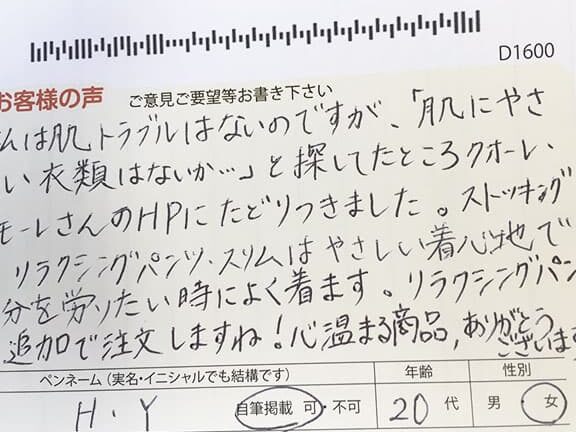 D1600
お客様の声 ご意見ご要望等お書き下さい
私は肌トラブルはないのですが、「肌にやさ
い衣類はないか…」と探してたところクオーレ、
モーレさんのHPにたどりつきました。ストッキング
リラクシングパンツ・スリムはやさしい着心地で
分を労りたい時によく着ます。リラクシングパン
追加で注文しますね！心温まる商品，ありがとう
ございます
ペンネーム（実名・イニシャルでも結構です） 年齢 性別
H・Y 自筆掲載 可・不可 20代 男・女